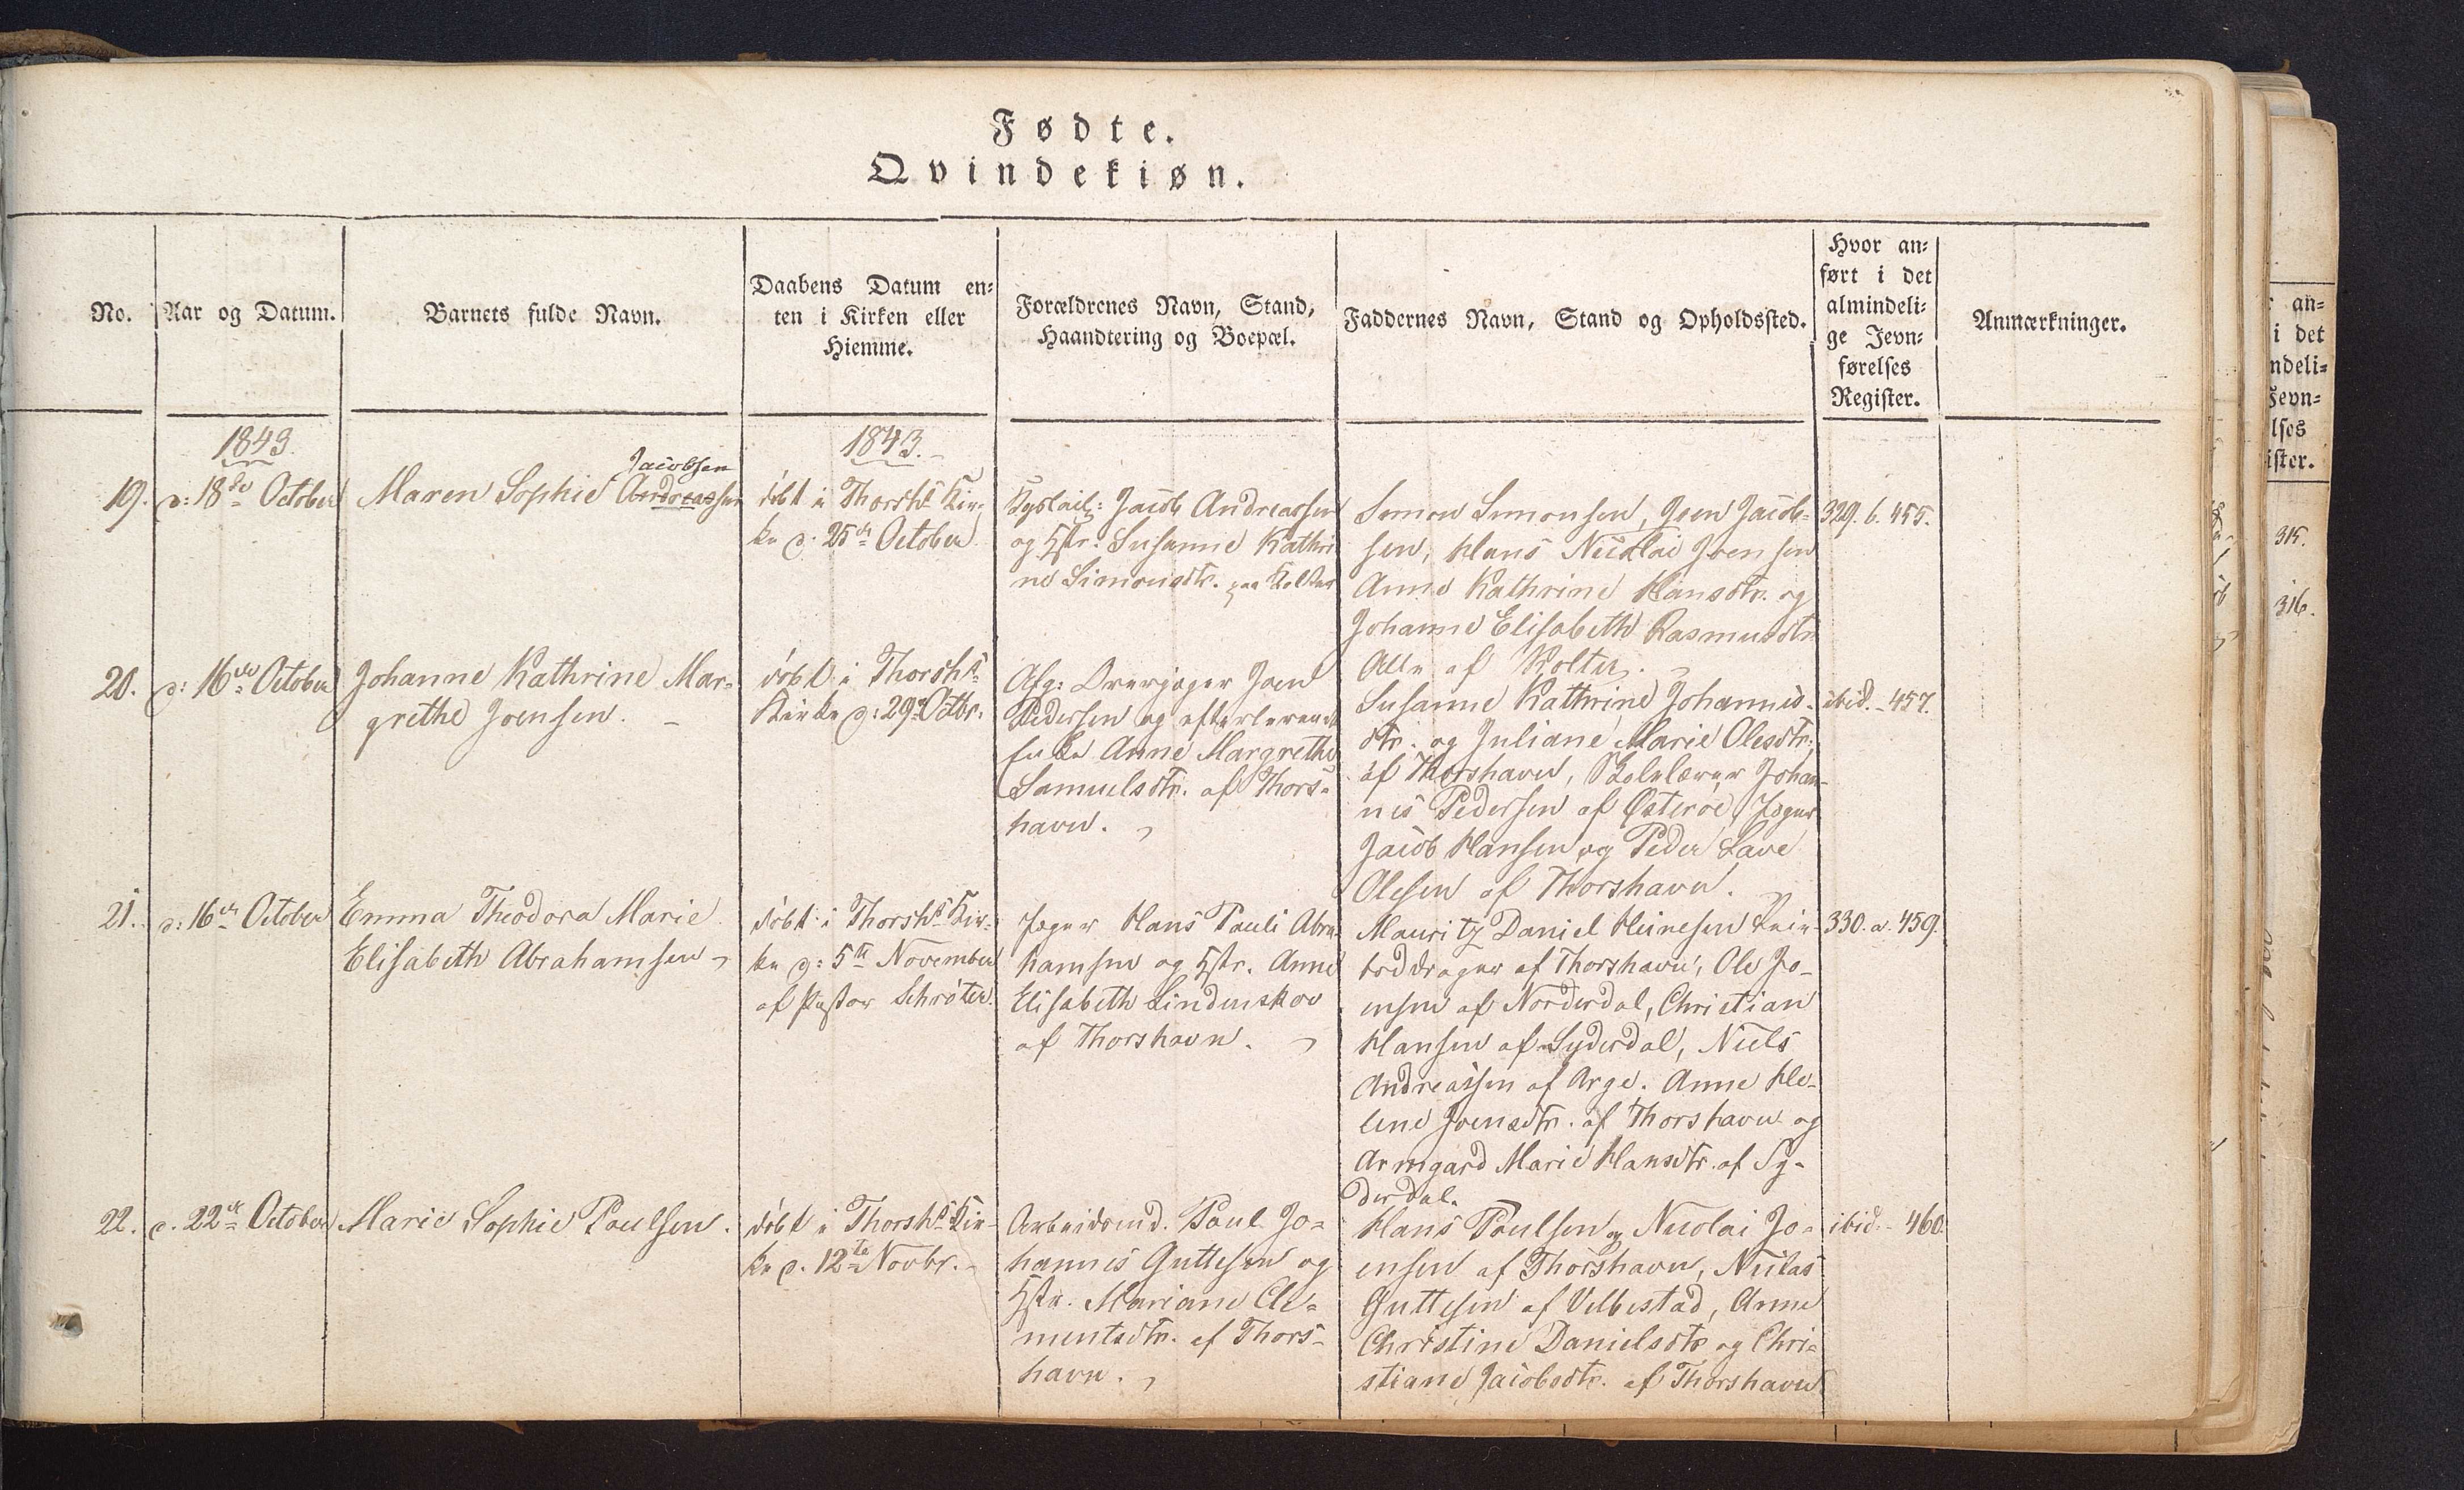 Fødte.
Qvindekiøn.
No.
Aar og Datum.
Barnets fulde Navn.
Daabens Datum en-
ten i Kirken eller
Hiemme.
Forældrenes Navn, Stand,
Haandtering og Boepæl.
Faddernes Navn, Stand og Opholdssted.
Hvor an-
ført i det
almindeli-
ge Jevn-
førelses
Register.
Anmærkninger.
1843.
1843.
19.
d: 18de October
Jacobsen
Maren Sophie Andreassen
døbt i Thorsh. Kir-
ke d. 25de October
Jacob Andreassen
og Hstr: Susanne Kathri
ne Simonsdtr. paa Kolter
Simon Simonsen, Joen Jacob-
sen, Hans Nicolai Joensen
Anne Kathrine Hansdtr. og
Johanne Elisabeth Rasmusdtr.
Alle af Kolter.
329. b. 455.
20.
d: 16de October
Johanne Kathrine Mar-
grethe Joensen.
døbt i Thorsh.
Kirke d: 29de Octbr.
Afg: Overjæger Joen
Pedersen og efterlevende
Enke Anne Margrethe
Samuelsdtr. af Thors-
havn.
Susanne Kathrine Johannis-
dtr. og Juliane Marie Olesdtr.
af Thorshavn, Skolelærer Johan-
nes Pedersen af Østerøe, Jæger
Jacob Hansen og Peder Lave
Olesen af Thorshavn.
ibid. - 457.
21.
d: 16de October
Emma Theodora Marie
Elisabeth Abrahamsen
døbt i Thorsh. Kir-
ke d: 5te November
af Pastor Schrøter.
Jæger Hans Pauli Abra-
hamsen og Hstr. Anne
Elisabeth Lindenskov
af Thorshavn.
Mauritz Daniel Heinesen
af Thorshavn, Ole Jo-
ensen af Norderdal, Christian
Hansen af Syderdal, Niels
Andreassen af Arge. Anne He-
lene Joensdtr. af Thorshavn og
Armgard Marie Hansdtr. af Sy-
derdal.
330. a. 459.
22.
d. 22de October
Marie Sophie Poulsen.
døbt i Thorsh. Kir-
ke d. 12te Novbr.
Arbeidsmd. Poul Jo-
hannes Guttesen og
Hstr. Mariane Cle-
mentsdtr. af Thors-
havn.
Hans Poulsen og Nicolai Jo-
ensen af Thorshavn, Niclas
Guttesen af Velbestad, Anne
Christine Danielsdtr og Chri-
stiane Jacobsdtr. af Thorshavn
ibid. - 460.
an-
i det
ndeli-
Jevn-
lses
ister.
315.
316.